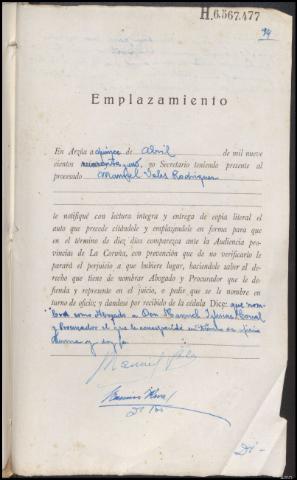 H.6.567.477
Emplazamiento
En Arzúa a quince de Abril de mil nueve
cientos cuarenta y uno, yo Secretario teniendo presente al
procesado Manuel Rodriguez
le notifiqué con lectura íntegra y entrega de copia literal el
auto que precede citándole y emplazándole en forma para que
en el término de diez días comparezca ante la Audiencia pro-
vincias de La Coruña, con prevención que de no verificarlo le
parará el perjuicio a que hubiere lugar, haciéndole saber el de-
recho que tiene de nombrar Abogado y Procurador que le de-
fienda y represente en el juicio, o pedir que se le nombre en
turno de oficio; y dándose por recibido de la cédula Dice: que nom-
bra como Abogado a Don Manuel Iglesias Corral
y Procurador el que le corresponda en turno de oficio
firma y doy fe
Manuel